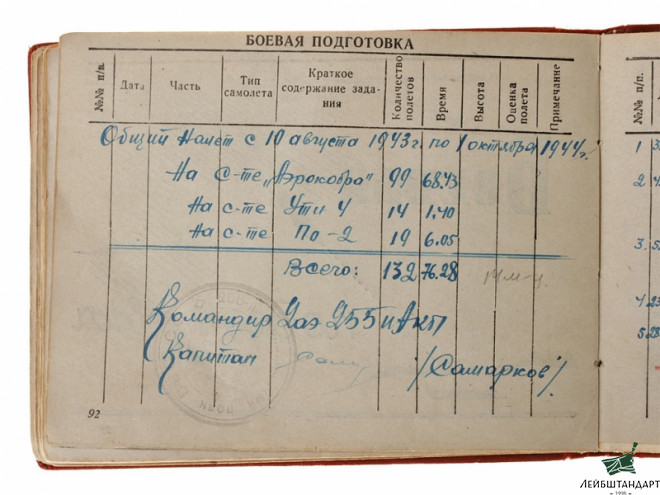 БОЕВАЯ ПОДГОТОВКА
№№ п/п. Дата Часть Тип самолета Краткое содержание задания Количество полетов Время Высота Оценка полета Примечание
Общий налет с 10 августа 1943 г. по 1 октября 1944 г.
На с-те „Аэрокобра" 99 68.43
На с-те Ути 4 14 1.40
На с-те По-2 19 6.05
Всего: 132 76.28
Командир 2 аэ 255 иАкп
Капитан /Самарков/
92
№№ п/п.
1
2
3.
4
5
ЛЕЙБШТАНДАРТ
1998